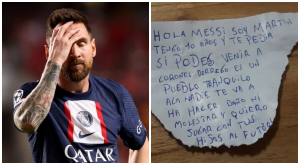 QATAR
AIRWAYS
HOLA MESSI SOY MARTIN
TENGO 10 AÑOS Y TE PEDIA
SI PODES VENIR A
CORONEL DORREGO ES UN
PUEBLO TRANQUILO
ACA NADIE TE VA A
HA HACER DAÑO NI
MOLESTAR Y QUIERO
JUGAR CON TUS
HIJOS AL FUTBOL